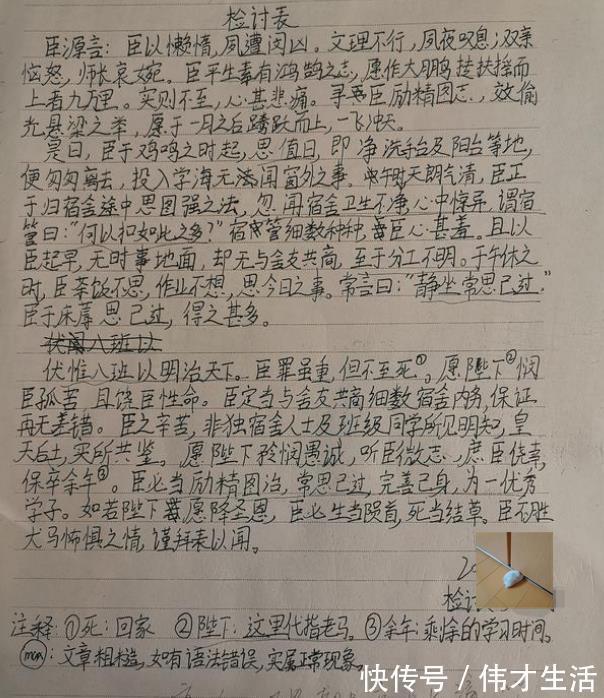 检讨表
臣源言：臣以懒惰，夙遭闵凶。文理不行，夙夜叹息；双亲
恼怒，师长哀婉。臣平生素有鸿鹄之志，愿作大鹏抟扶摇而
上者九万里。实则不至，心甚悲痛。寻臣励精图志，效偷
光悬梁之举，愿于一月之后踌跃而上，一飞冲天。
是日，臣于鸡鸣之时起，思值日，即净洗手台及阳台等地，
便匆匆离去，投入学海无法闻窗外之事。中午时天朗气清，臣正
于归宿舍途中思图强之法，忽闻宿舍卫生不净，心中惊异，谓宿
管曰："何以扣如此之多？"宿管细数种种，臣心甚羞。且以
臣起早，无时事地面，却无与舍友共商，至于分工不明。于午休之
时，臣茶饭不思，作业不想，思今日之事。常言曰："静坐常思己过。"
臣于床蓐思己过，得之甚多。
伏闻八班以
伏惟八班以明治天下。臣罪虽重，但不至死①。愿陛下②悯
臣孤苦，且饶臣性命。臣定当与舍友共商细数宿舍内务，保证
再无差错。臣之辛苦，非独宿舍人士及班级同学所见明知，皇
天后土，实所共鉴。愿陛下矜悯愚诚，听臣微志，庶臣侥幸，
保卒余年③。臣必当励精图治，常思己过，完善己身，为一优秀
学子。如若陛下愿降圣恩，臣必生当陨首，死当结草。臣不胜
犬马怖惧之情，谨拜表以闻。
20
检讨
注释：①死：回家 ②陛下：这里代指老马。③余年：剩馀的学习时间。
man：文章粗糙，如有语法错误，实属正常现象。
快传号／伟才生活